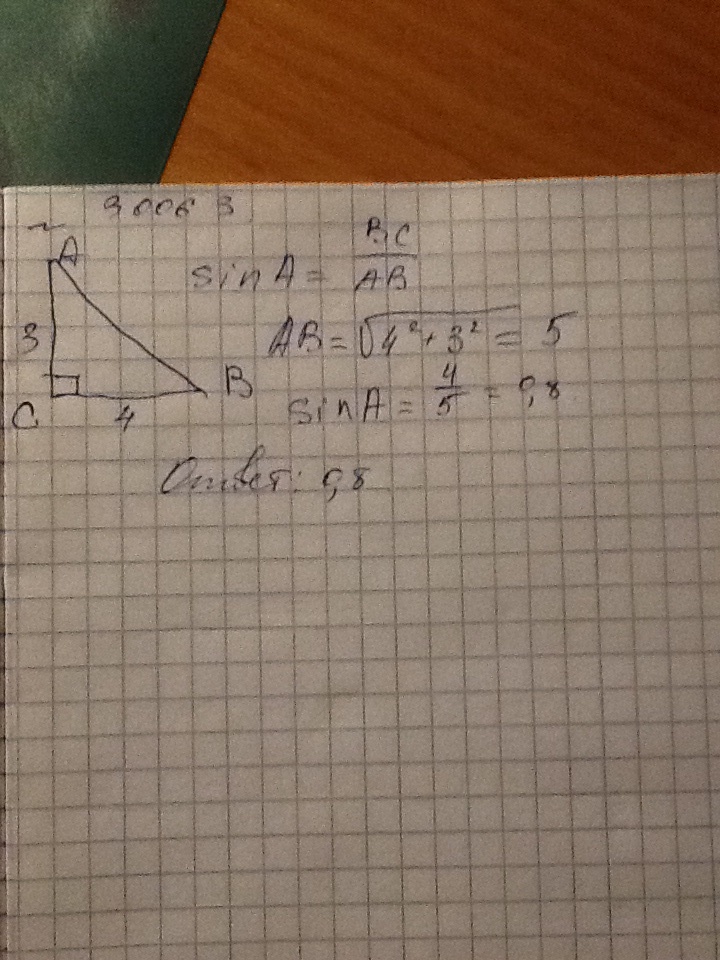 A
3
C
4
B
sin A = BC/AB
AB = √4² + 3² = 5
sin A = 4/5 = 0,8
Ответ: 0,8